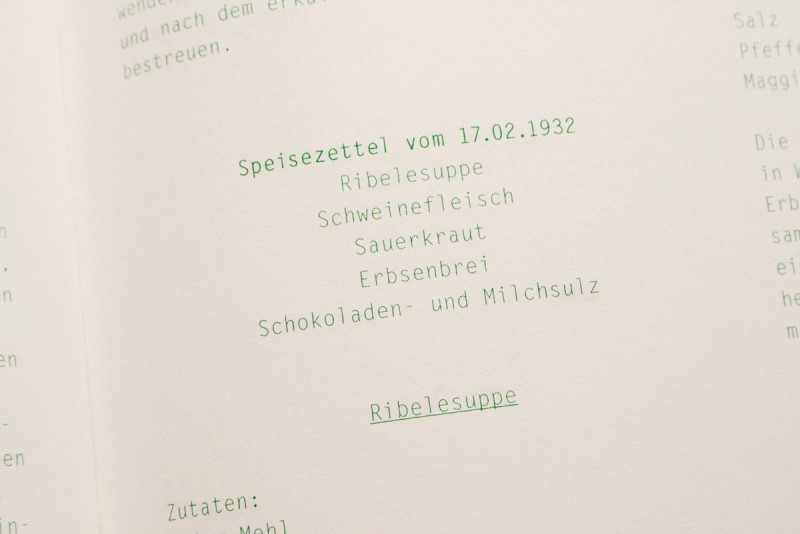 und nach dem
bestreuen.
Speisezettel vom 17.02.1932
Ribelesuppe
Schweinefleisch
Sauerkraut
Erbsenbrei
Schokoladen- und Milchsulz
Ribelesuppe
Zutaten:
Mehl
Salz
Pfeffe
Maggi
Die
in W
Erb
sam
ei
he
m
n
.
n
en
-
en
in-